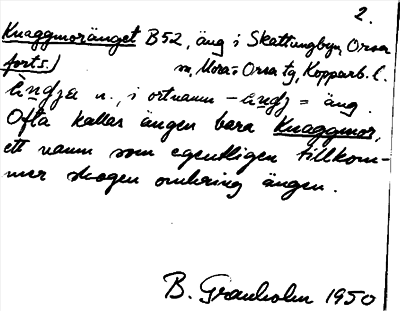 2.
Knaggmoränget B52, äng i Skattungbyn, Orsa
forts.) sn, Mora o Orsa tg, Kopparb. l.
ìndʒa n., i ortnamn -ìndʒ = äng.
Ofta kallas ängen bara Knaggmor,
ett namn som egentligen tillkom-
mer skogen omkring ängen.
B. Granholm 1950